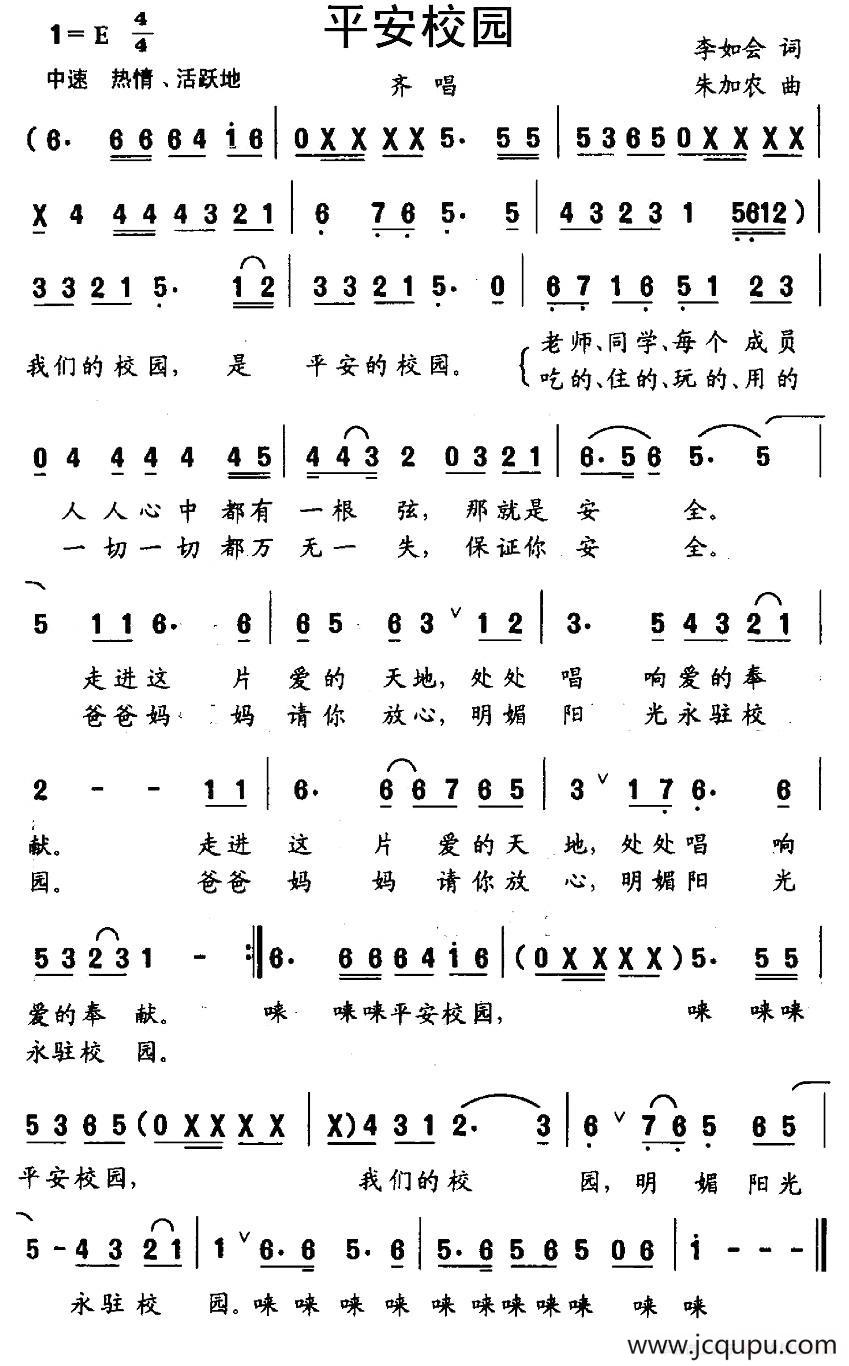 平安校园
1=E 4/4
李如会 词
中速 热情、活跃地
齐 唱
朱加农 曲
(6· 66 64 i6 | 0XX XX 5· 55 | 53 65 0XX XX |
X 4 44 43 21 | 6 76 5· 5 | 43 23 1 5612) |
33 21 5· 12 | 33 21 5· 0 | 67 16 51 23 |
我们的校园, 是 平安的校园。 老师、同学、每个 成员
吃的、住的、玩的、用的
0 4 4 4 4 45 | 443 2 03 21 | 6·56 5· 5 |
人人心中 都有 一根 弦, 那就是 安 全。
一切一切 都万 无一 失, 保证你 安 全。
5 11 6· 6 | 6 5 6 3 ∨ 12 | 3· 5 43 21 |
走进这 片 爱的 天地, 处处 唱 响爱的奉
爸爸妈 妈 请你 放心, 明媚 阳 光永驻校
2 - - 11 | 6· 6 67 65 | 3 ∨ 17 6· 6 |
献。 走进 这 片 爱的天 地, 处处唱 响
园。 爸爸 妈 妈 请你放 心, 明媚阳 光
53 23 1 - :‖ 6· 66 64 i6 | (0XX XX) 5· 55 |
爱的奉 献。 唻 唻唻平安校园, 唻 唻唻
永驻校 园。
53 65 (0XX XX | X) 4 31 2· 3 | 6 ∨ 76 5 65 |
平安校园, 我们的校 园, 明 媚 阳光
5 - 43 21 | 1 ∨ 6·6 5·6 | 5·6 56 5 06 | i - - - ‖
永驻校 园。唻 唻 唻 唻 唻 唻唻唻唻 唻 唻
www.jcqupu.com